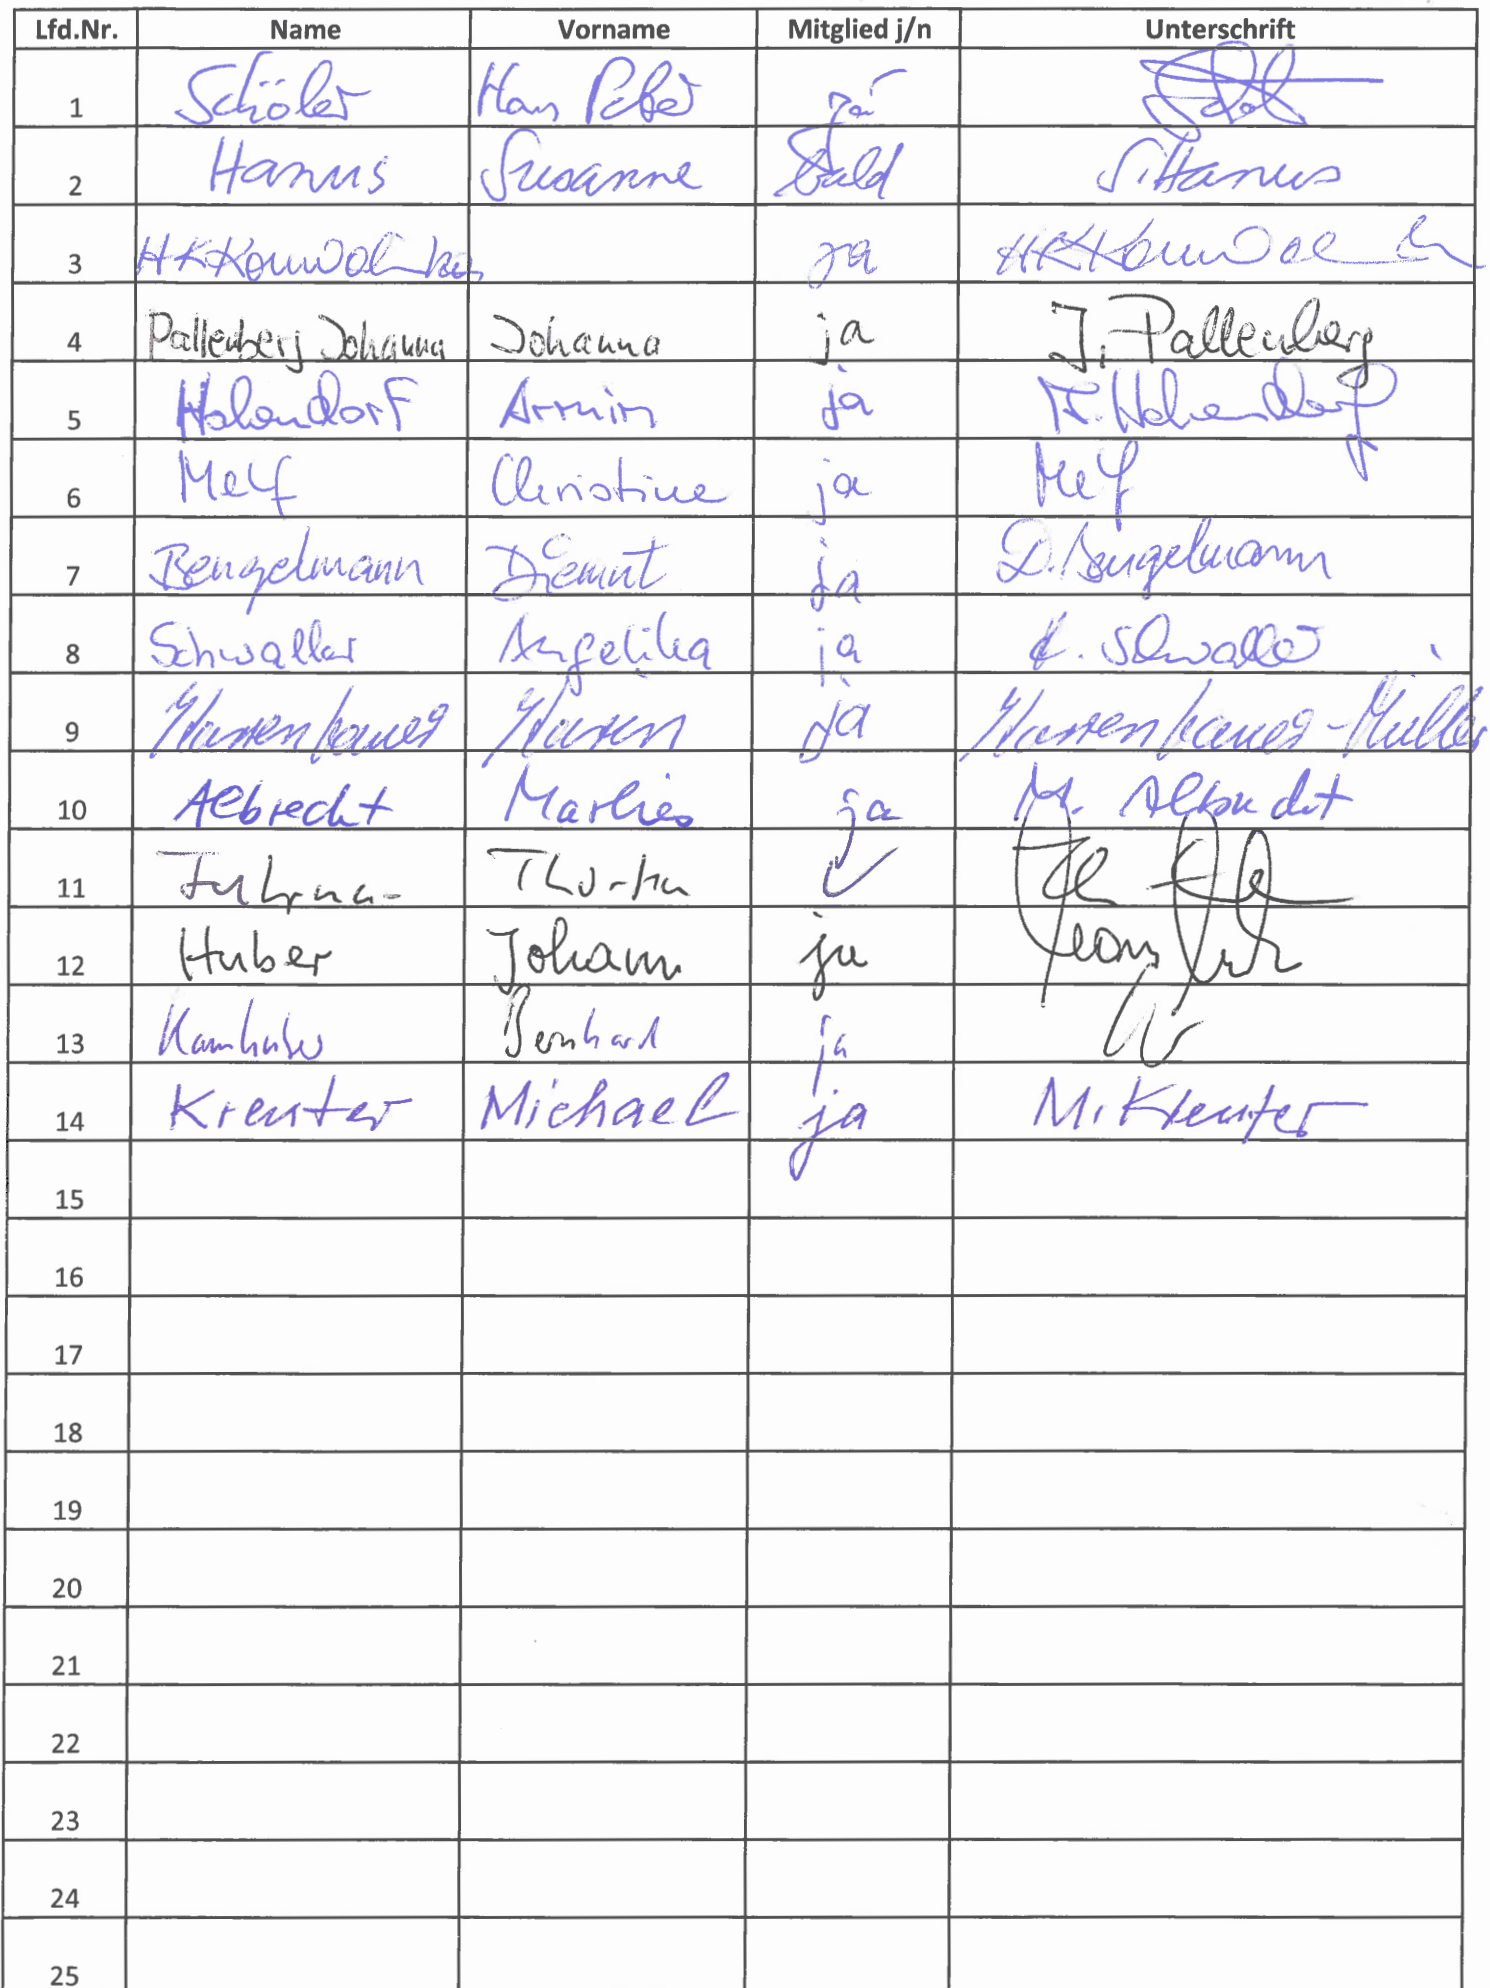 Lfd.Nr. Name Vorname Mitglied j/n Unterschrift
1 Schöler Hans Peter ja
2 Hanus Susanne bald S. Hanus
3 ja
4 Pallenberg Johanna Johanna ja J. Pallenberg
5 Hohendorf Armin ja A. Hohendorf
6 Melf Christine ja Melf
7 Bengelmann Diemut ja D. Bengelmann
8 Schwaller Angelika ja A. Schwaller
9 ja
10 Albrecht Marlies ja M. Albrecht
11
12 Huber Johann ja
13 Bernhard ja
14 Kreuter Michael ja M. Kreuter
15
16
17
18
19
20
21
22
23
24
25